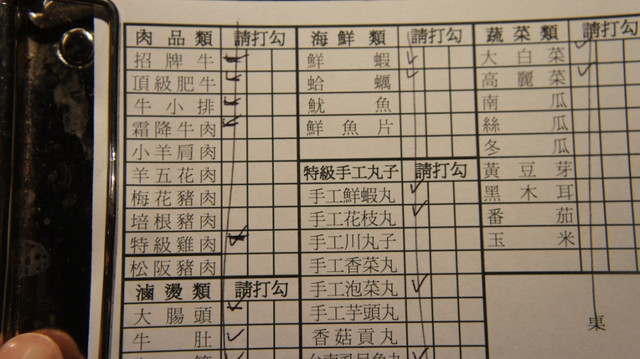 肉品類 請打勾
招牌牛
頂級肥牛
牛小排
霜降牛肉
小羊肩肉
羊五花肉
梅花豬肉
培根豬肉
特級雞肉
松阪豬肉
滷燙類 請打勾
大腸頭
牛肚
海鮮類 請打勾
鮮蝦
蛤蠣
魷魚
鮮魚片
特級手工丸子 請打勾
手工鮮蝦丸
手工花枝丸
手工川丸子
手工香菜丸
手工泡菜丸
手工芋頭丸
香菇貢丸
蔬菜類 請打勾
大白菜
高麗菜
南瓜
絲瓜
冬瓜
黃豆芽
黑木耳
番茄
玉米